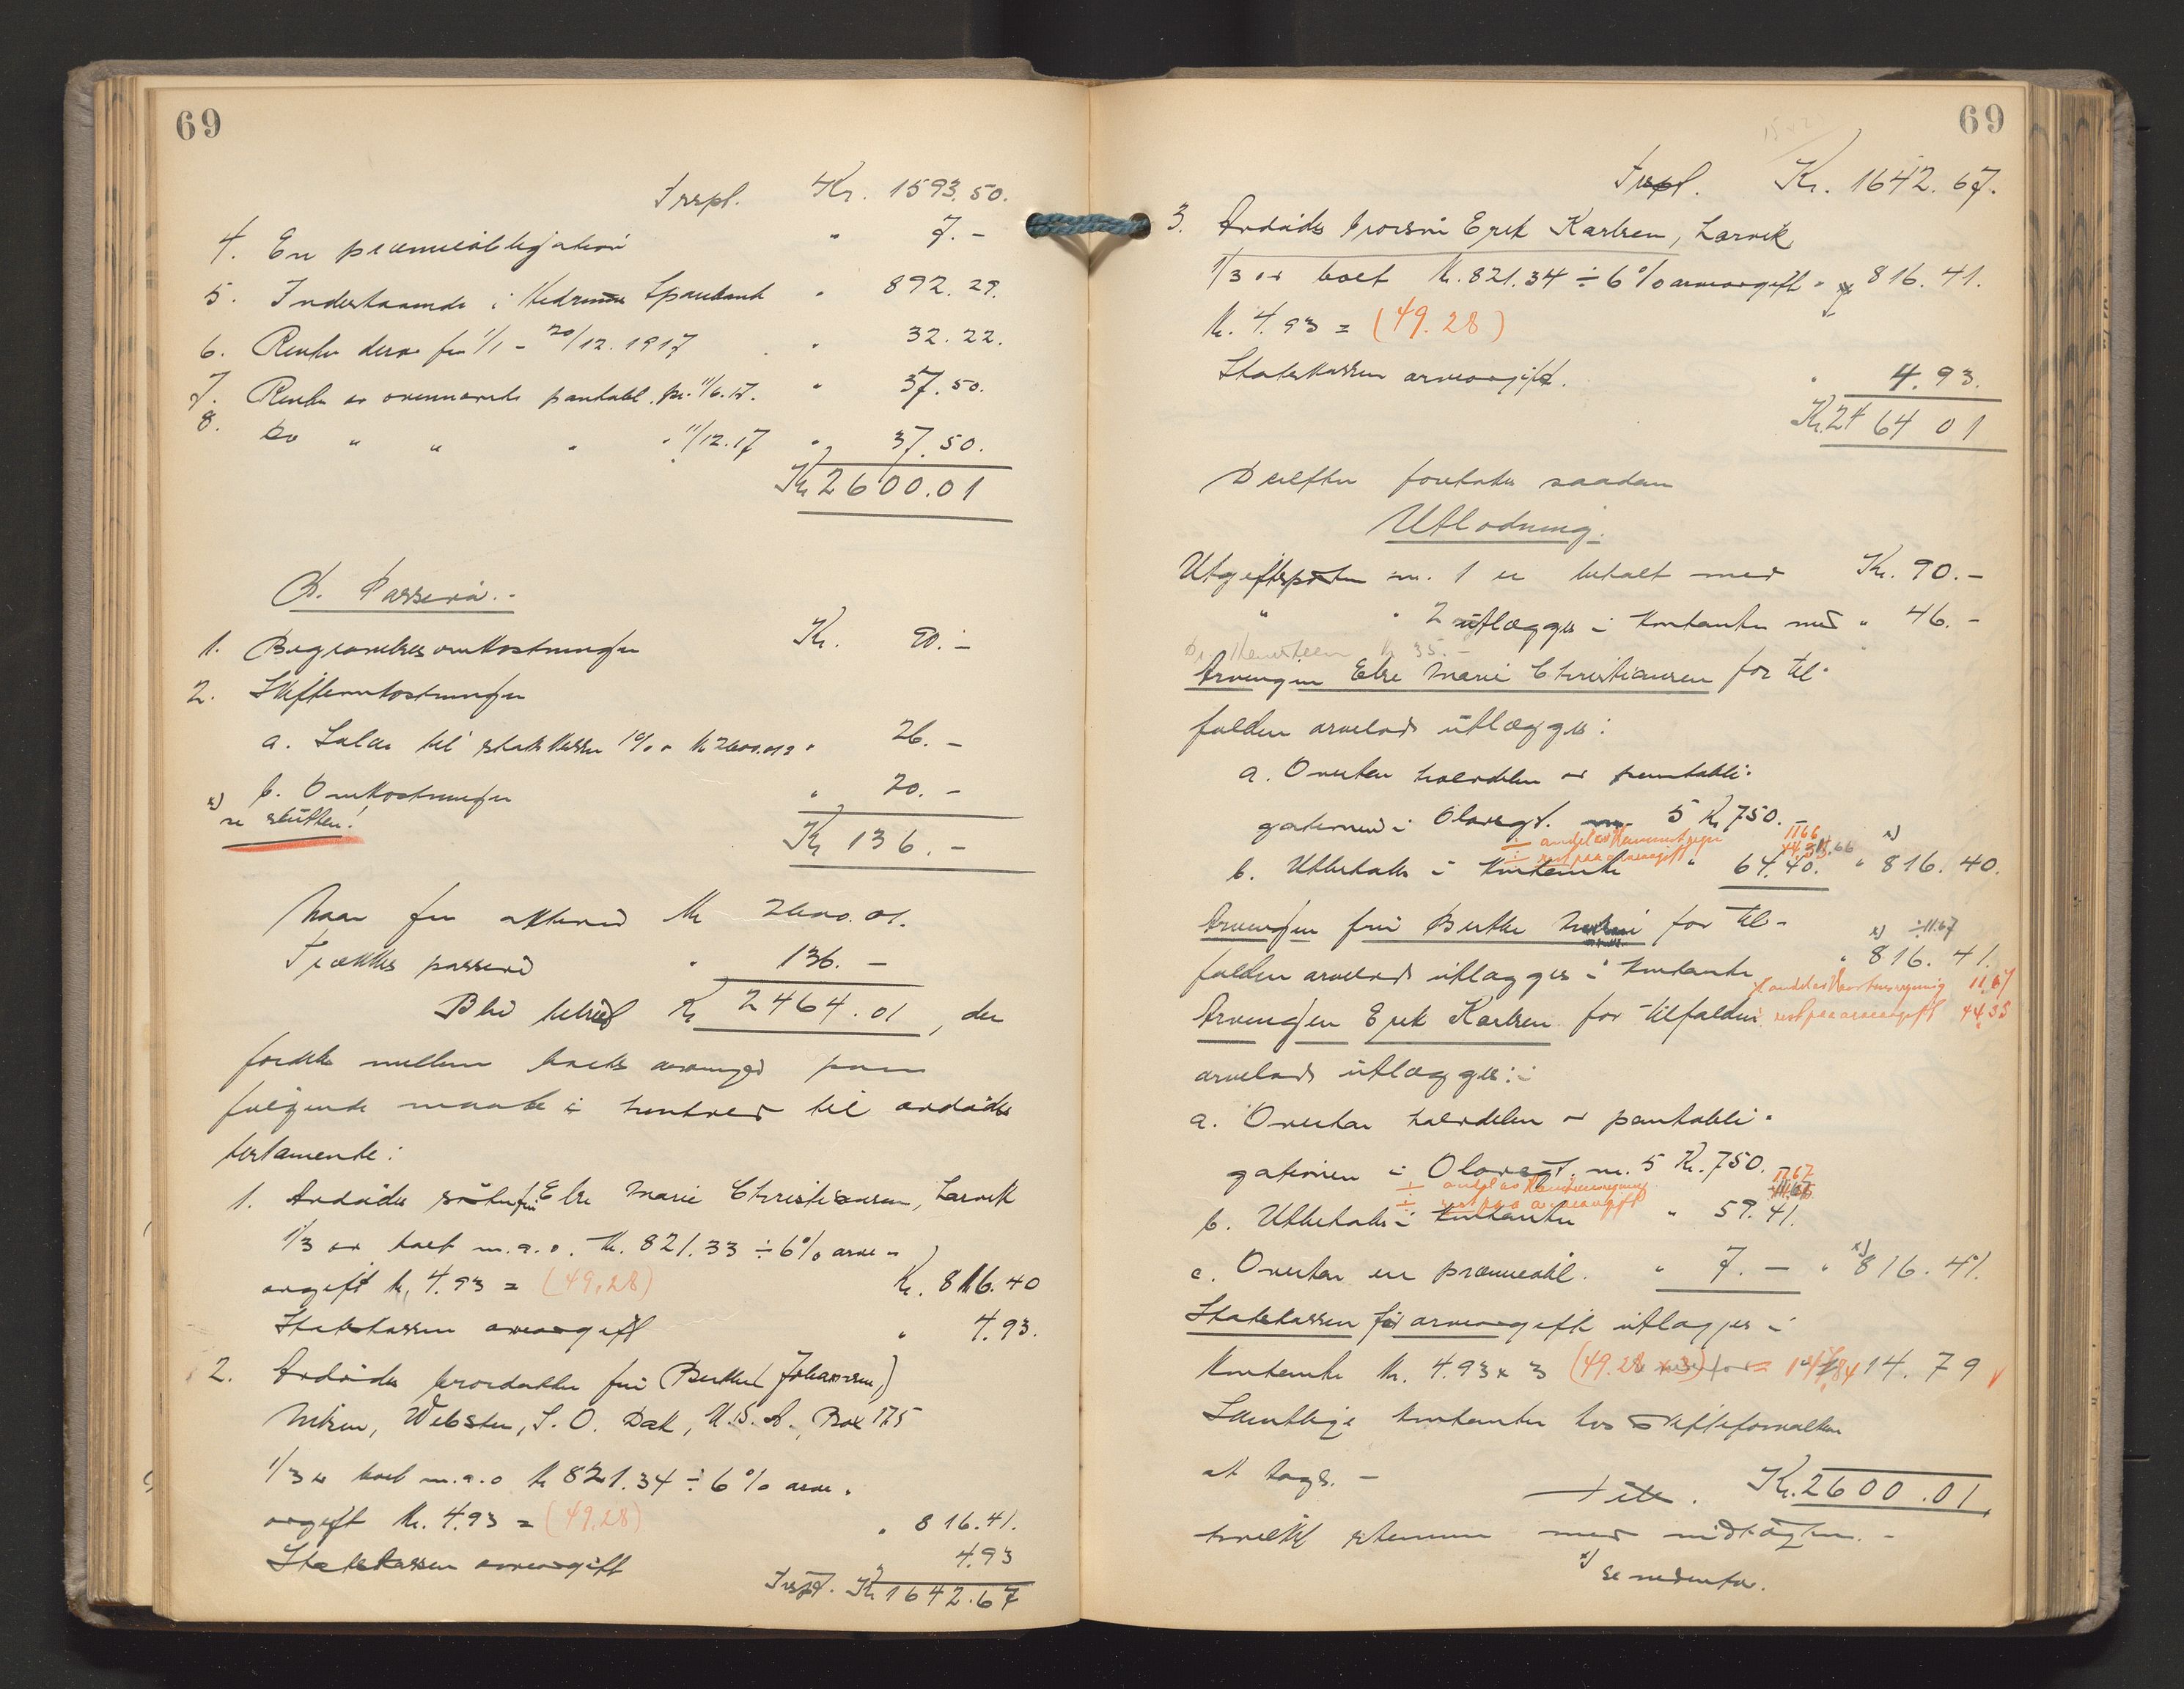 69
Trspl. Kr. 1593.50.
4. En præmieobligation " 7.-
5. Indestaaende i Hedrum Sparebank " 892.29.
6. Renter derav fra 1/1 - 20/12.1917 " 32.22.
7. Renter av ovennævnte pantobl. pr. 11/6.17. " 37.50.
8. Do " " " " 11/12.17 " 37.50.
Kr 2600.01
B. Passiva.-
1. Begravelsesomkostninger Kr. 90.-
2. Skifteomkostninger
a. Salær til statskassen 1% av kr 2600.01 " 26.-
b. Omkostninger " 20.-
x) se slutten!
Kr 136.-
Naar fra aktiva Kr 2600.01.
Trækkes passiva " 136.-
Blir behold Kr 2464.01, der
fordeles mellem boets arvinger paa
følgende maate i henhold til avdødes
testamente:
1. Avdødes søster fru Else Marie Christiansen, Larvik
1/3 av boet m.a.o. kr. 821.33 ÷ 6% arve-
avgift kr. 4.93 = (49.28) Kr. 816.40
Statskassen arveavgift " 4.93.
2. Avdødes brordatter fru Berthe (Johannesen)
Nilsen, Webster, S.O. Dak, U.S.A., Box 175
1/3 av boet m.a.o kr 821.34 ÷ 6% arve-
avgift kr. 4.93 = (49.28) " 816.41.
Statskassen arveavgift " 4.93
Trspt. Kr 1642.67
69
Trspl. Kr. 1642.67.
3. Avdødes brorsøn Erik Karlsen, Larvik
1/3 av boet kr. 821.34 ÷ 6% arveavgift " 816.41.
kr. 4.93 = (49.28)
Statskassen arveavgift. " 4.93.
Kr. 2464 01
Derefter foretokes saadan
Utlodning.
Utgiftspost nr. 1 er betalt med Kr. 90.-
" " 2 utlægges i kontanter med " 46.-
Kr 35.-
Arvingen Else Marie Christiansen for til-
falden arvelod utlægges:
a. Overtar halvdelen av pantobli-
gationen i Olavsgt. nr. 5 Kr 750.-
÷ andel av 11.66
÷ rest paa arveavgift 44.35
b. Utbetales i kontanter " 64.40. " x) 816.40.
Arvingen fru Berthe Nilsen for til- ÷ 11.67
falden arvelod utlægges i kontanter " x) 816.41.
÷ andel av 11.67
Arvingen Erik Karlsen for tilfalden rest paa arveavgift 44.35
arvelod utlægges:
a. Overtar halvdelen av pantobli-
gationen i Olavsgt. nr. 5 Kr. 750.-
÷ andel av 11.67
÷ rest paa arveavgift
b. Utbetales i kontanter " 59.41.
c. Overtar en præmieobl. " 7.- " x) 816.41.
Statskassen for arveavgift utlægges i
kontanter kr. 4.93 x 3 (49.28 x 3) = 147.84 14.79
Samtlige kontanter hos skifteforvalteren
at tages.-
Tils. Kr. 2600.01.
hvilket stemmer med indtægten.-
x) se nedenfor.